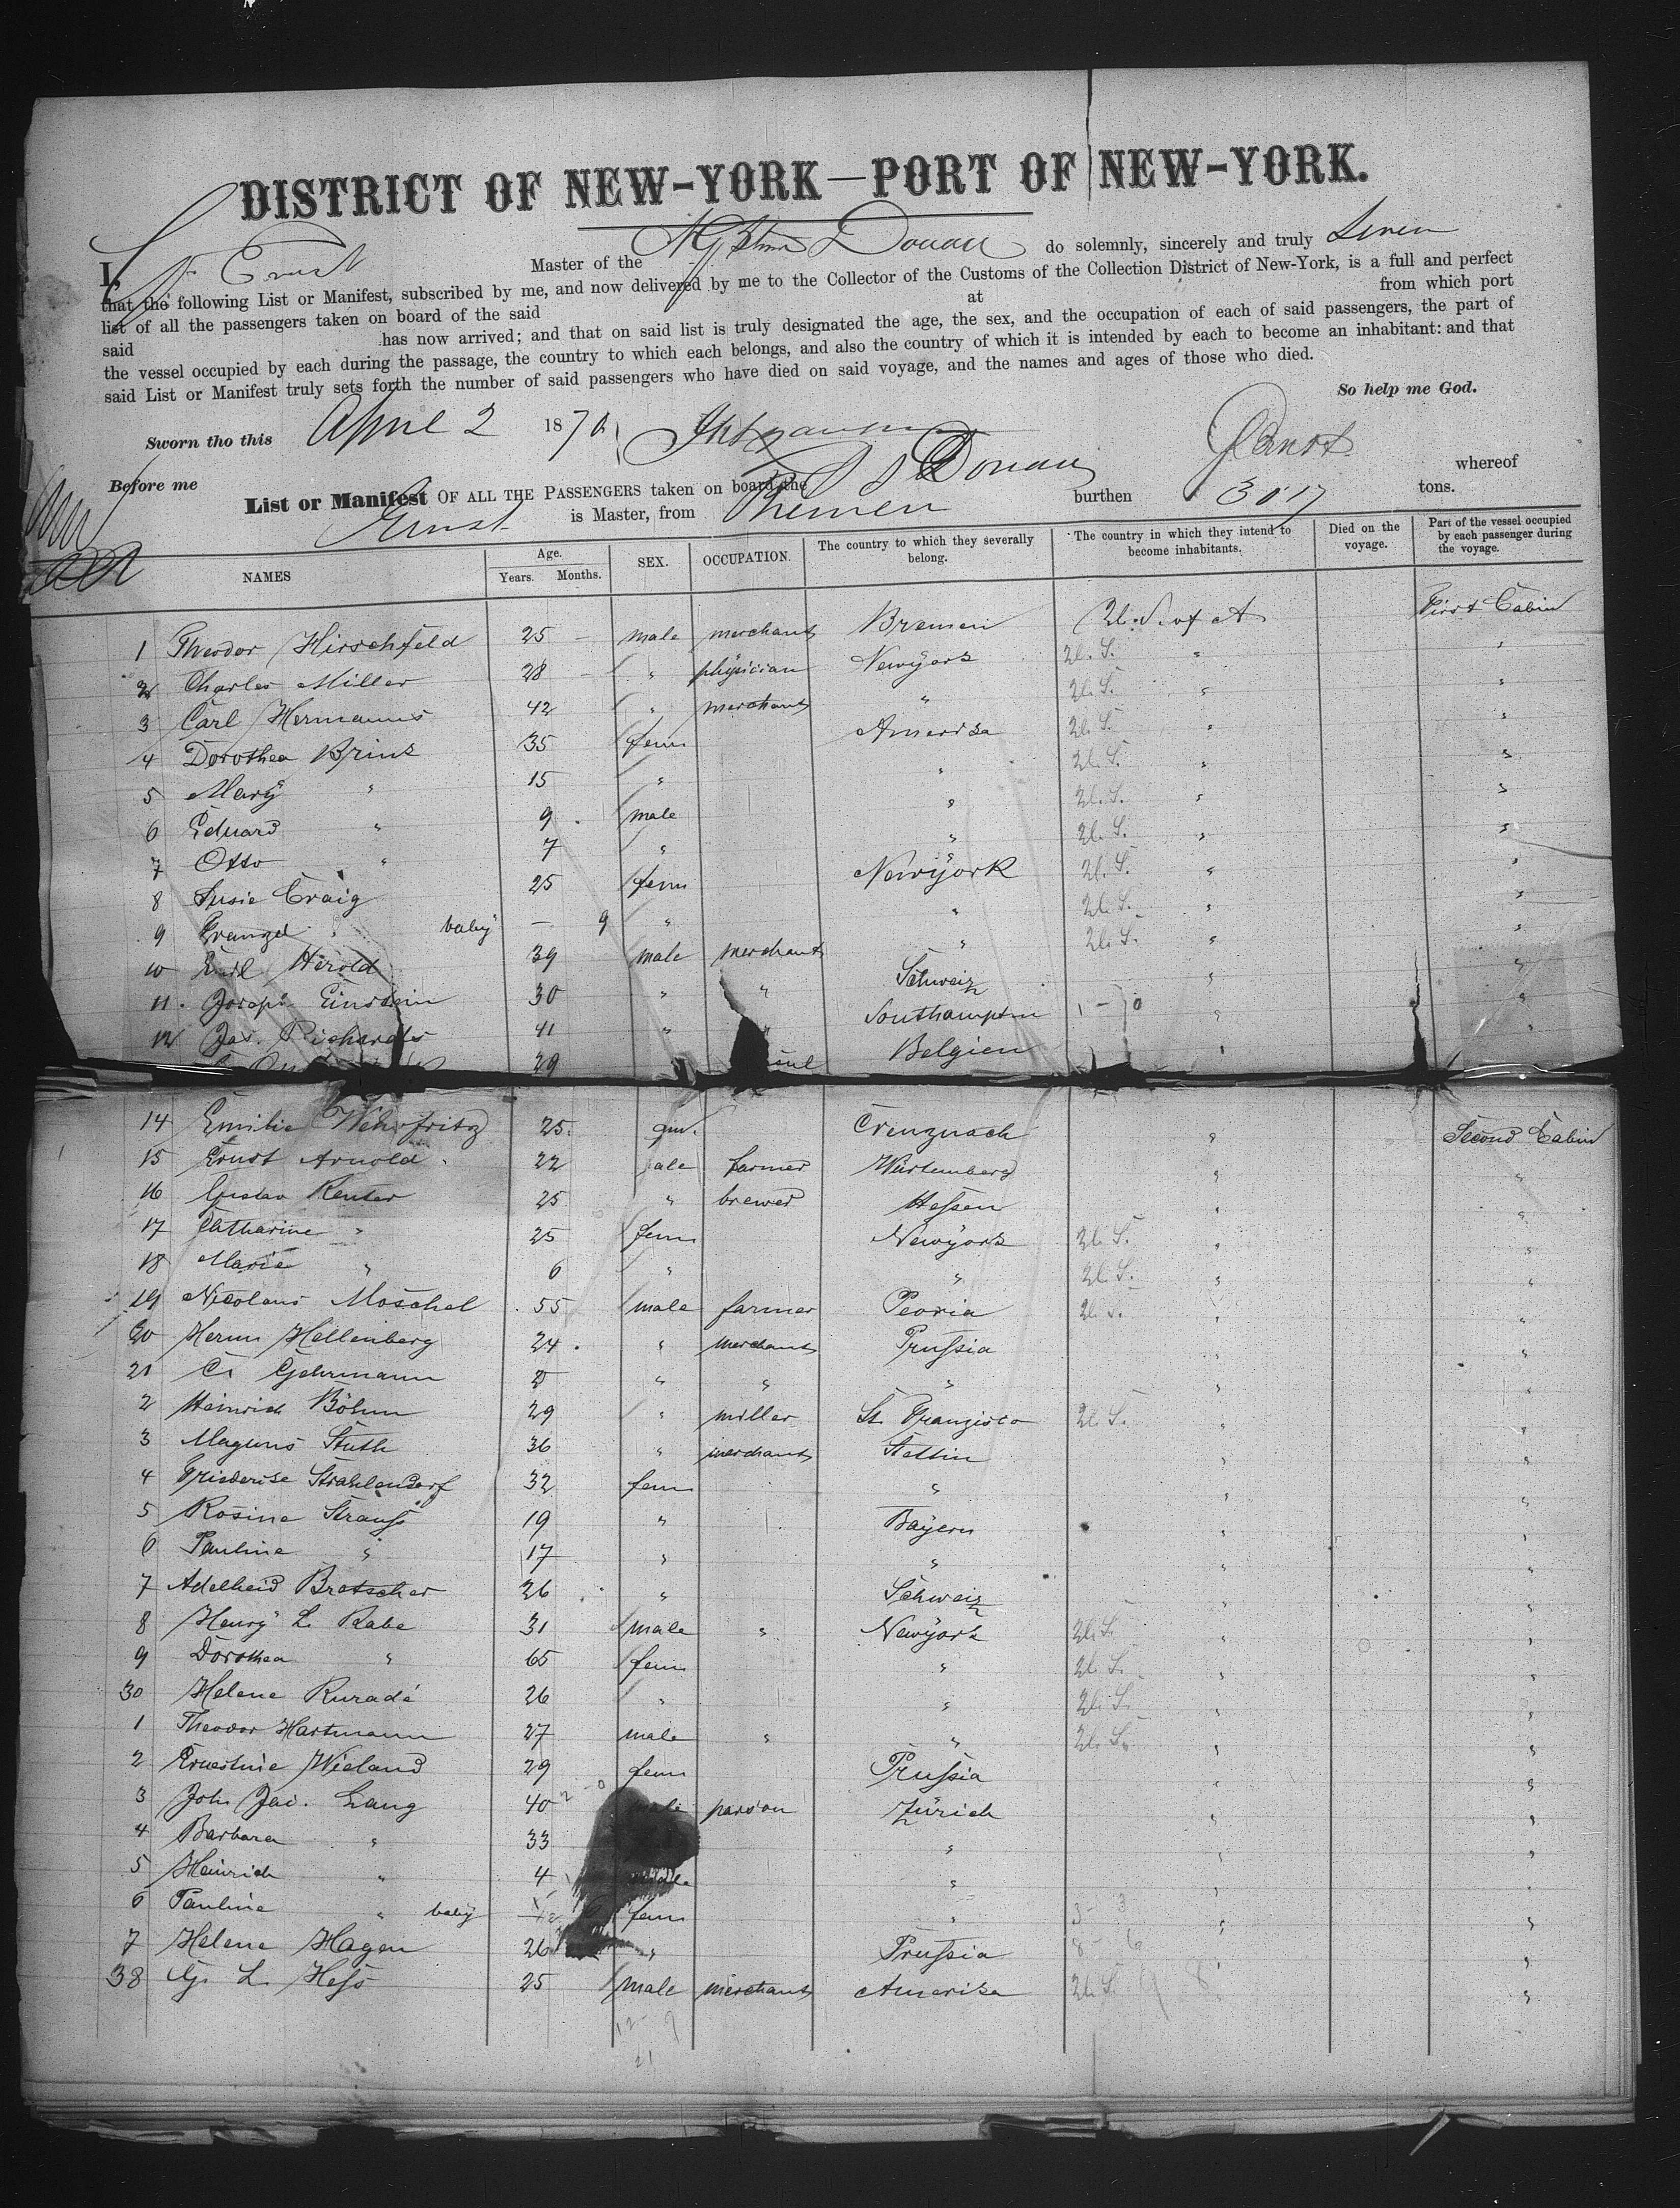 DISTRICT OF NEW-YORK—PORT OF NEW-YORK.
I, Ernst Master of the Donau do solemnly, sincerely and truly
that the following List or Manifest, subscribed by me, and now delivered by me to the Collector of the Customs of the Collection District of New-York, is a full and perfect
list of all the passengers taken on board of the said at from which port
said has now arrived; and that on said list is truly designated the age, the sex, and the occupation of each of said passengers, the part of
the vessel occupied by each during the passage, the country to which each belongs, and also the country of which it is intended by each to become an inhabitant: and that
said List or Manifest truly sets forth the number of said passengers who have died on said voyage, and the names and ages of those who died.
So help me God.
Sworn tho this April 2 1870
Before me
List or Manifest OF ALL THE PASSENGERS taken on board the S S Donau whereof
Ernst is Master, from Bremen burthen 3017 tons.
NAMES Age. Years. Months. SEX. OCCUPATION. The country to which they severally belong. The country in which they intend to become inhabitants. Died on the voyage. Part of the vessel occupied by each passenger during the voyage.
1 Theodor Hirschfeld 25 – male merchant Bremen U. S. of A First Cabin
2 Charles Miller 28 – " physician Newyork U. S. " "
3 Carl Hermanns 42 " merchant " U. S. " "
4 Dorothea Brink 35 fem Amerika U. S. " "
5 Mary " 15 " " U. S. " "
6 Eduard " 9 male " U. S. " "
7 Otto " 7 " " U. S. " "
8 Susie Craig 25 fem Newyork U. S. " "
9 " baby – 9 " " U. S. " "
10 Emil Herold 39 male merchant " U. S. " "
11 Joseph Einstein 30 " " Schweiz " "
12 Jas. Richards 41 " " Southampton " "
29 Belgien "
14 Emilie Wehrfritz 25 Creuznach " Second Cabin
15 Ernst Arnold 22 ale farmer Würtemberg " "
16 Gustav Reuter 25 " brewer Hessen " "
17 Catharine " 25 fem Newyork U. S. " "
18 Marie " 6 " " U. S. " "
19 Nicolaus Moschel 55 male farmer Peoria U. S. " "
20 Herm Hellenberg 24 " merchant Prussia " "
21 C. Gehrmann " " " " "
2 Heinrich Böhm 29 " miller St. Franzisco U. S. " "
3 Magnus Stuth 36 " merchant Stettin " "
4 Friederike Strahlendorf 32 fem " " "
5 Rosine Strauss 19 " Bayern " "
6 Pauline " 17 " " " "
7 Adelheid Bretscher 26 " Schweiz " "
8 Henry L. Rabe 31 male " Newyork U. S. " "
9 Dorothea " 65 fem " U. S. " "
30 Helene Kuradé 26 " " U. S. " "
1 Theodor Hartmann 27 male " " U. S. " "
2 Ernestine Wieland 29 fem Prussia " "
3 Joh. Jac. Lang 40 male parson Zürich " "
4 Barbara " 33 " " "
5 Heinrich " 4 male " " "
6 Pauline " baby fem " " "
7 Helene Hagen 26 " Prussia " "
38 G. L. Hess 25 male merchant Amerika U. S. " "